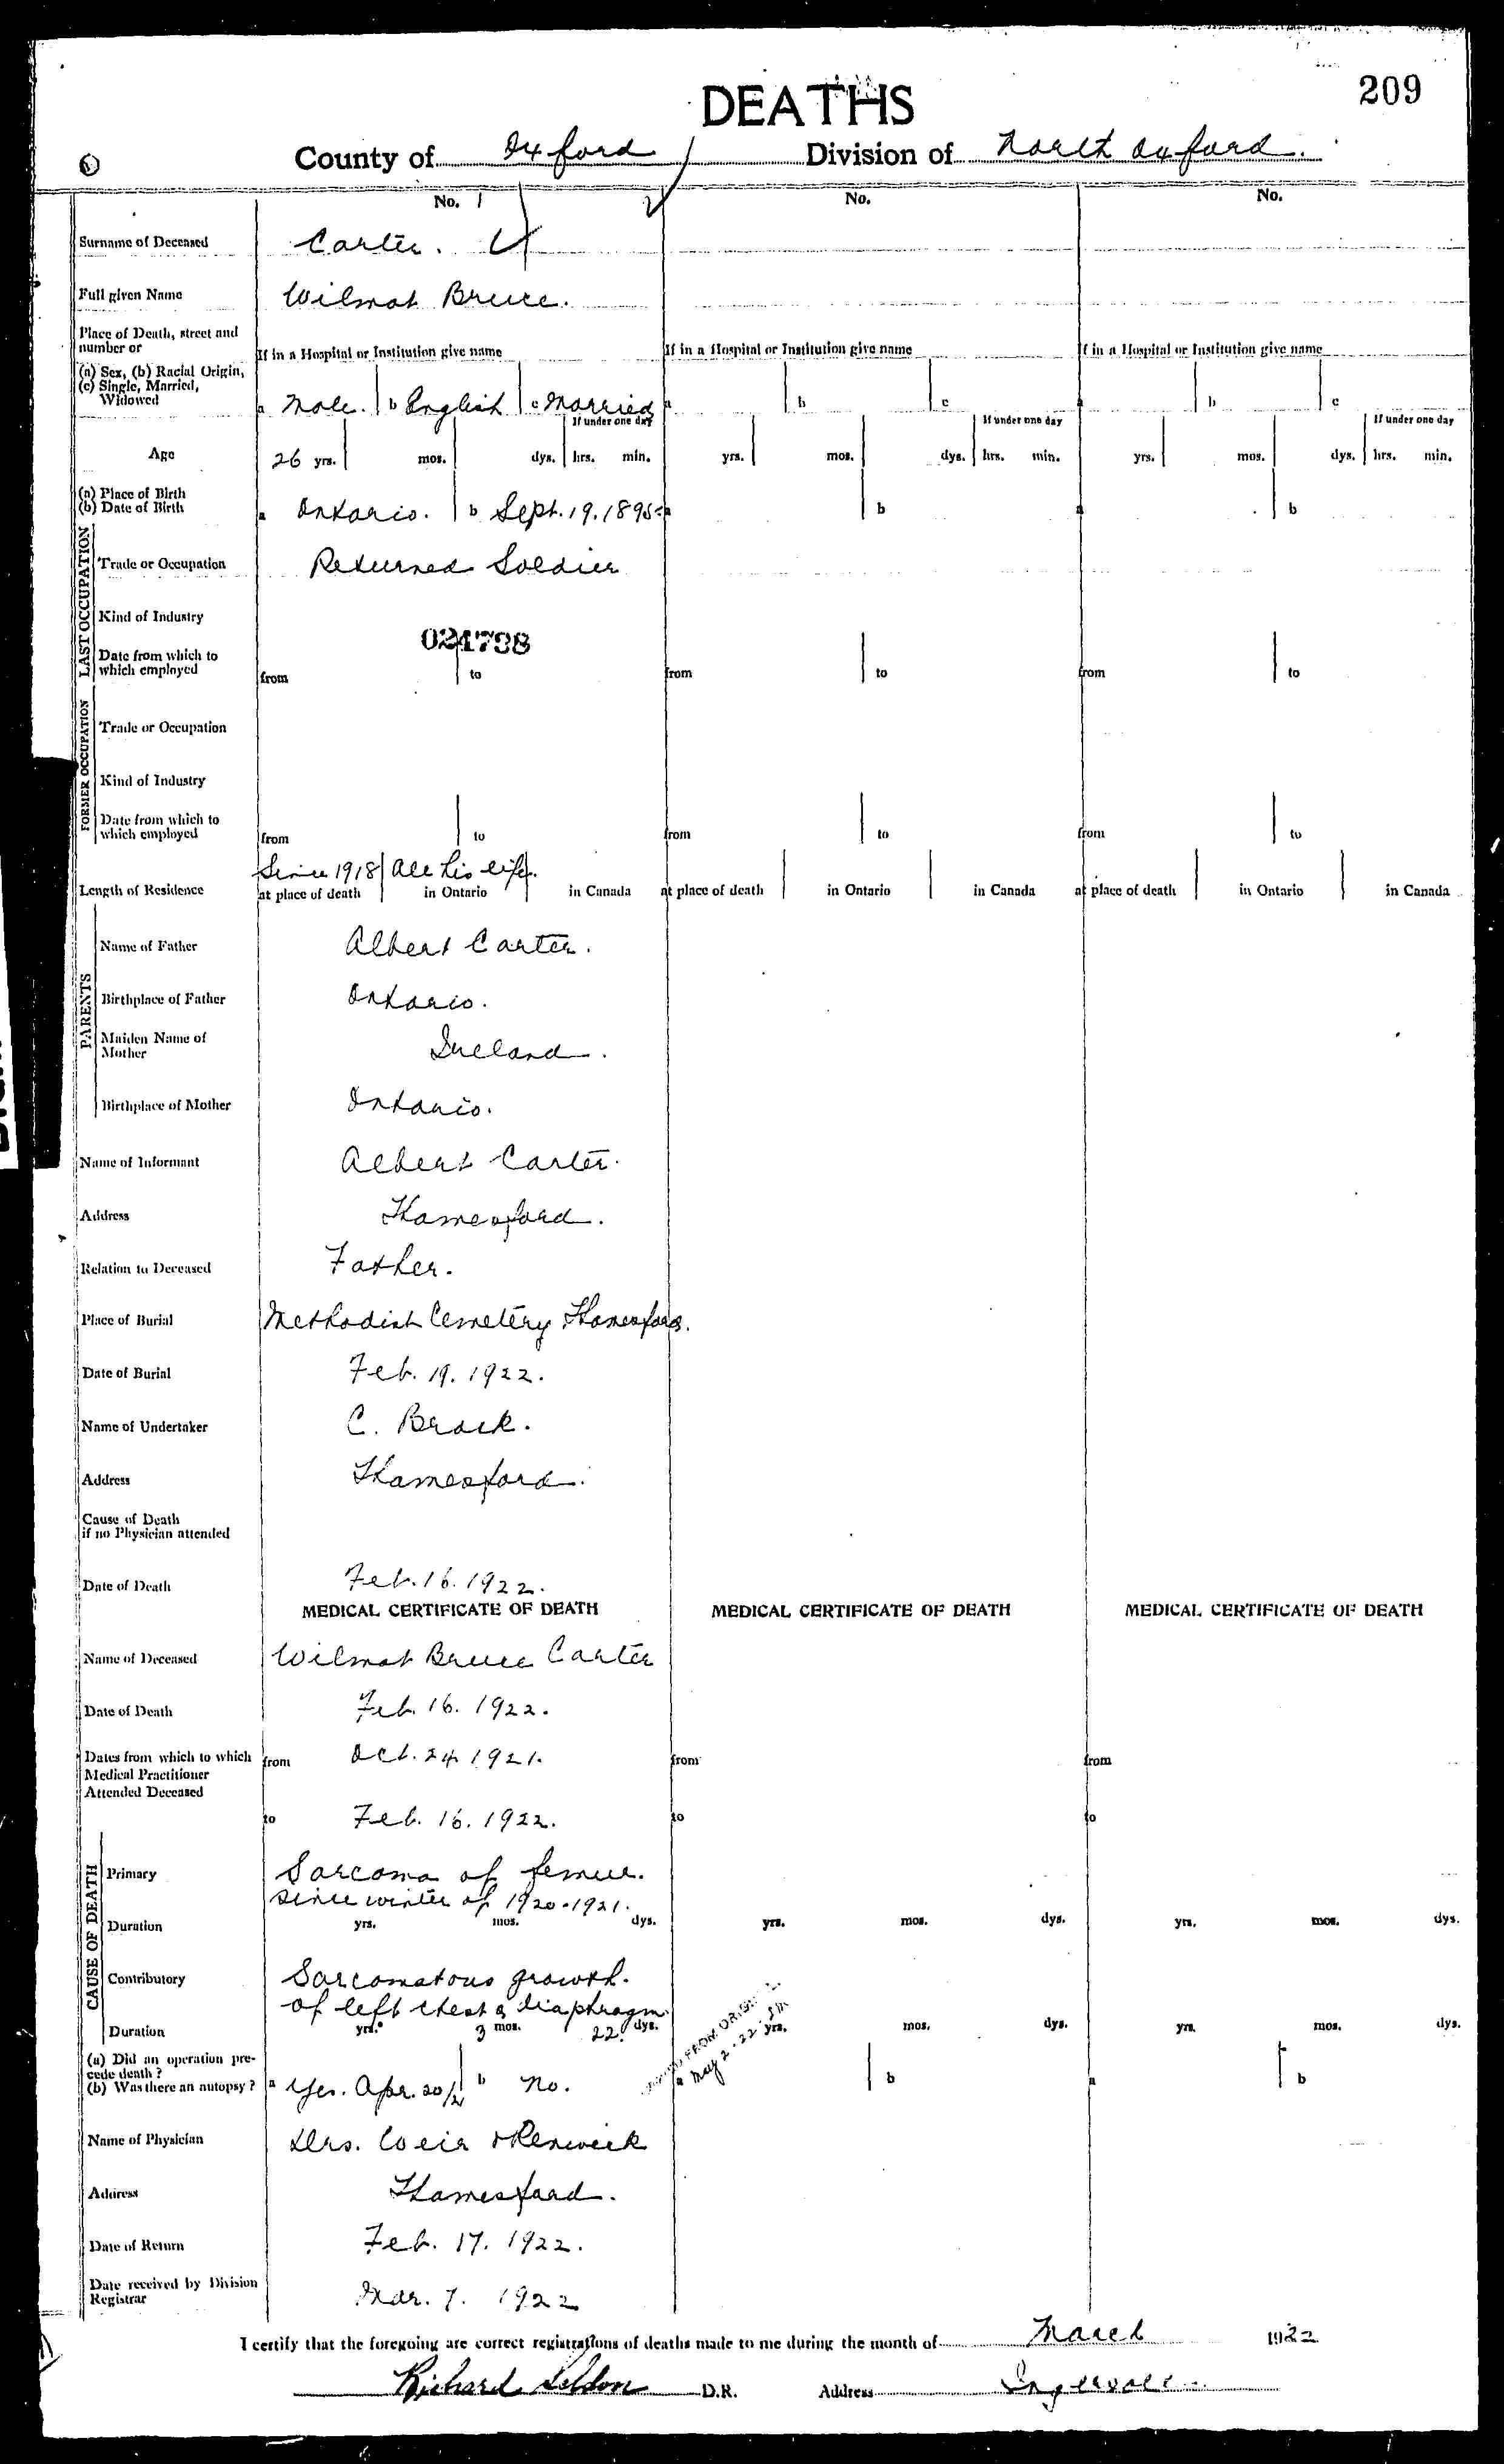 209
DEATHS
County of Oxford Division of North Oxford.
No. 1 No. No.
Surname of Deceased Carter.
Full given Name Wilmot Bruce.
Place of Death, street and number or If in a Hospital or Institution give name If in a Hospital or Institution give name If in a Hospital or Institution give name
(a) Sex, (b) Racial Origin, (c) Single, Married, Widowed a Male. b English c Married a b c a b c
If under one day If under one day If under one day
Age 26 yrs. mos. dys. hrs. min. yrs. mos. dys. hrs. min. yrs. mos. dys. hrs. min.
(a) Place of Birth
(b) Date of Birth a Ontario. b Sept. 19. 1895 a b a b
LAST OCCUPATION
Trade or Occupation Returned Soldier
Kind of Industry
024798
Date from which to which employed from to from to from to
FORMER OCCUPATION
Trade or Occupation
Kind of Industry
Date from which to which employed from to from to from to
Since 1918 All his life.
Length of Residence at place of death in Ontario in Canada at place of death in Ontario in Canada at place of death in Ontario in Canada
PARENTS
Name of Father Albert Carter.
Birthplace of Father Ontario.
Maiden Name of Mother Ireland.
Birthplace of Mother Ontario.
Name of Informant Albert Carter.
Address Thamesford.
Relation to Deceased Father.
Place of Burial Methodist Cemetery Thamesford.
Date of Burial Feb. 19. 1922.
Name of Undertaker C. Brock.
Address Thamesford.
Cause of Death
if no Physician attended
Date of Death Feb. 16. 1922.
MEDICAL CERTIFICATE OF DEATH MEDICAL CERTIFICATE OF DEATH MEDICAL CERTIFICATE OF DEATH
Name of Deceased Wilmot Bruce Carter
Date of Death Feb. 16. 1922.
Dates from which to which Medical Practitioner Attended Deceased from Oct. 24 1921. from from
to Feb. 16. 1922. to to
CAUSE OF DEATH
Primary Sarcoma of femur.
since winter of 1920-1921.
Duration yrs. mos. dys. yrs. mos. dys. yrs. mos. dys.
Contributory Sarcomatous growth.
of left chest & diaphragm
Duration yrs. 3 mos. 22 dys. yrs. mos. dys. yrs. mos. dys.
FROM ORIGINAL
May 2-22
(a) Did an operation precede death?
(b) Was there an autopsy? a Yes. Apr. 20/21 b No. a b a b
Name of Physician Drs. Weir & Renwick
Address Thamesford.
Date of Return Feb. 17. 1922.
Date received by Division Registrar Mar. 7. 1922
I certify that the foregoing are correct registrations of deaths made to me during the month of March 1922
Richard Seldon D.R. Address Ingersoll